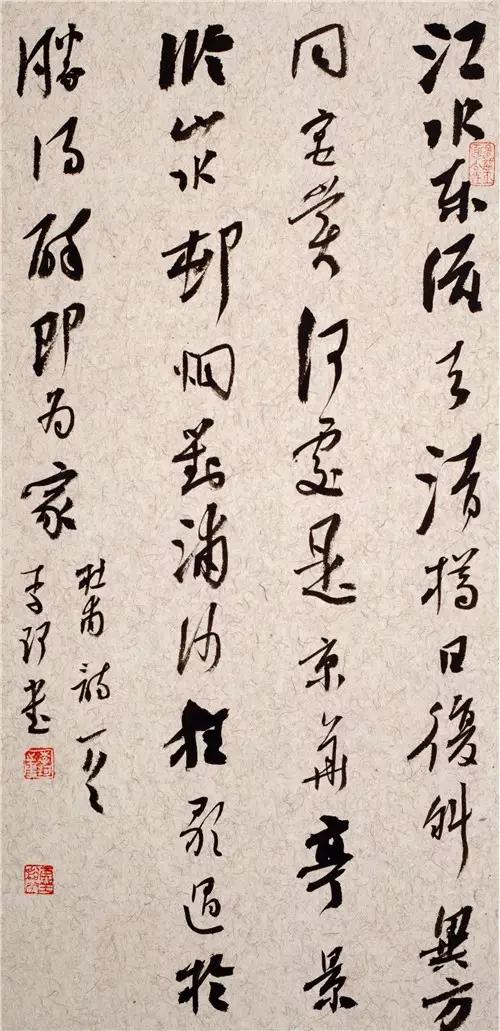 江水东流去清樽日復斜異方
同宴賞何處是京華亭景
临山水邨烟對浦沙狂歌過於
勝得酔即为家
杜甫詩一首
李书